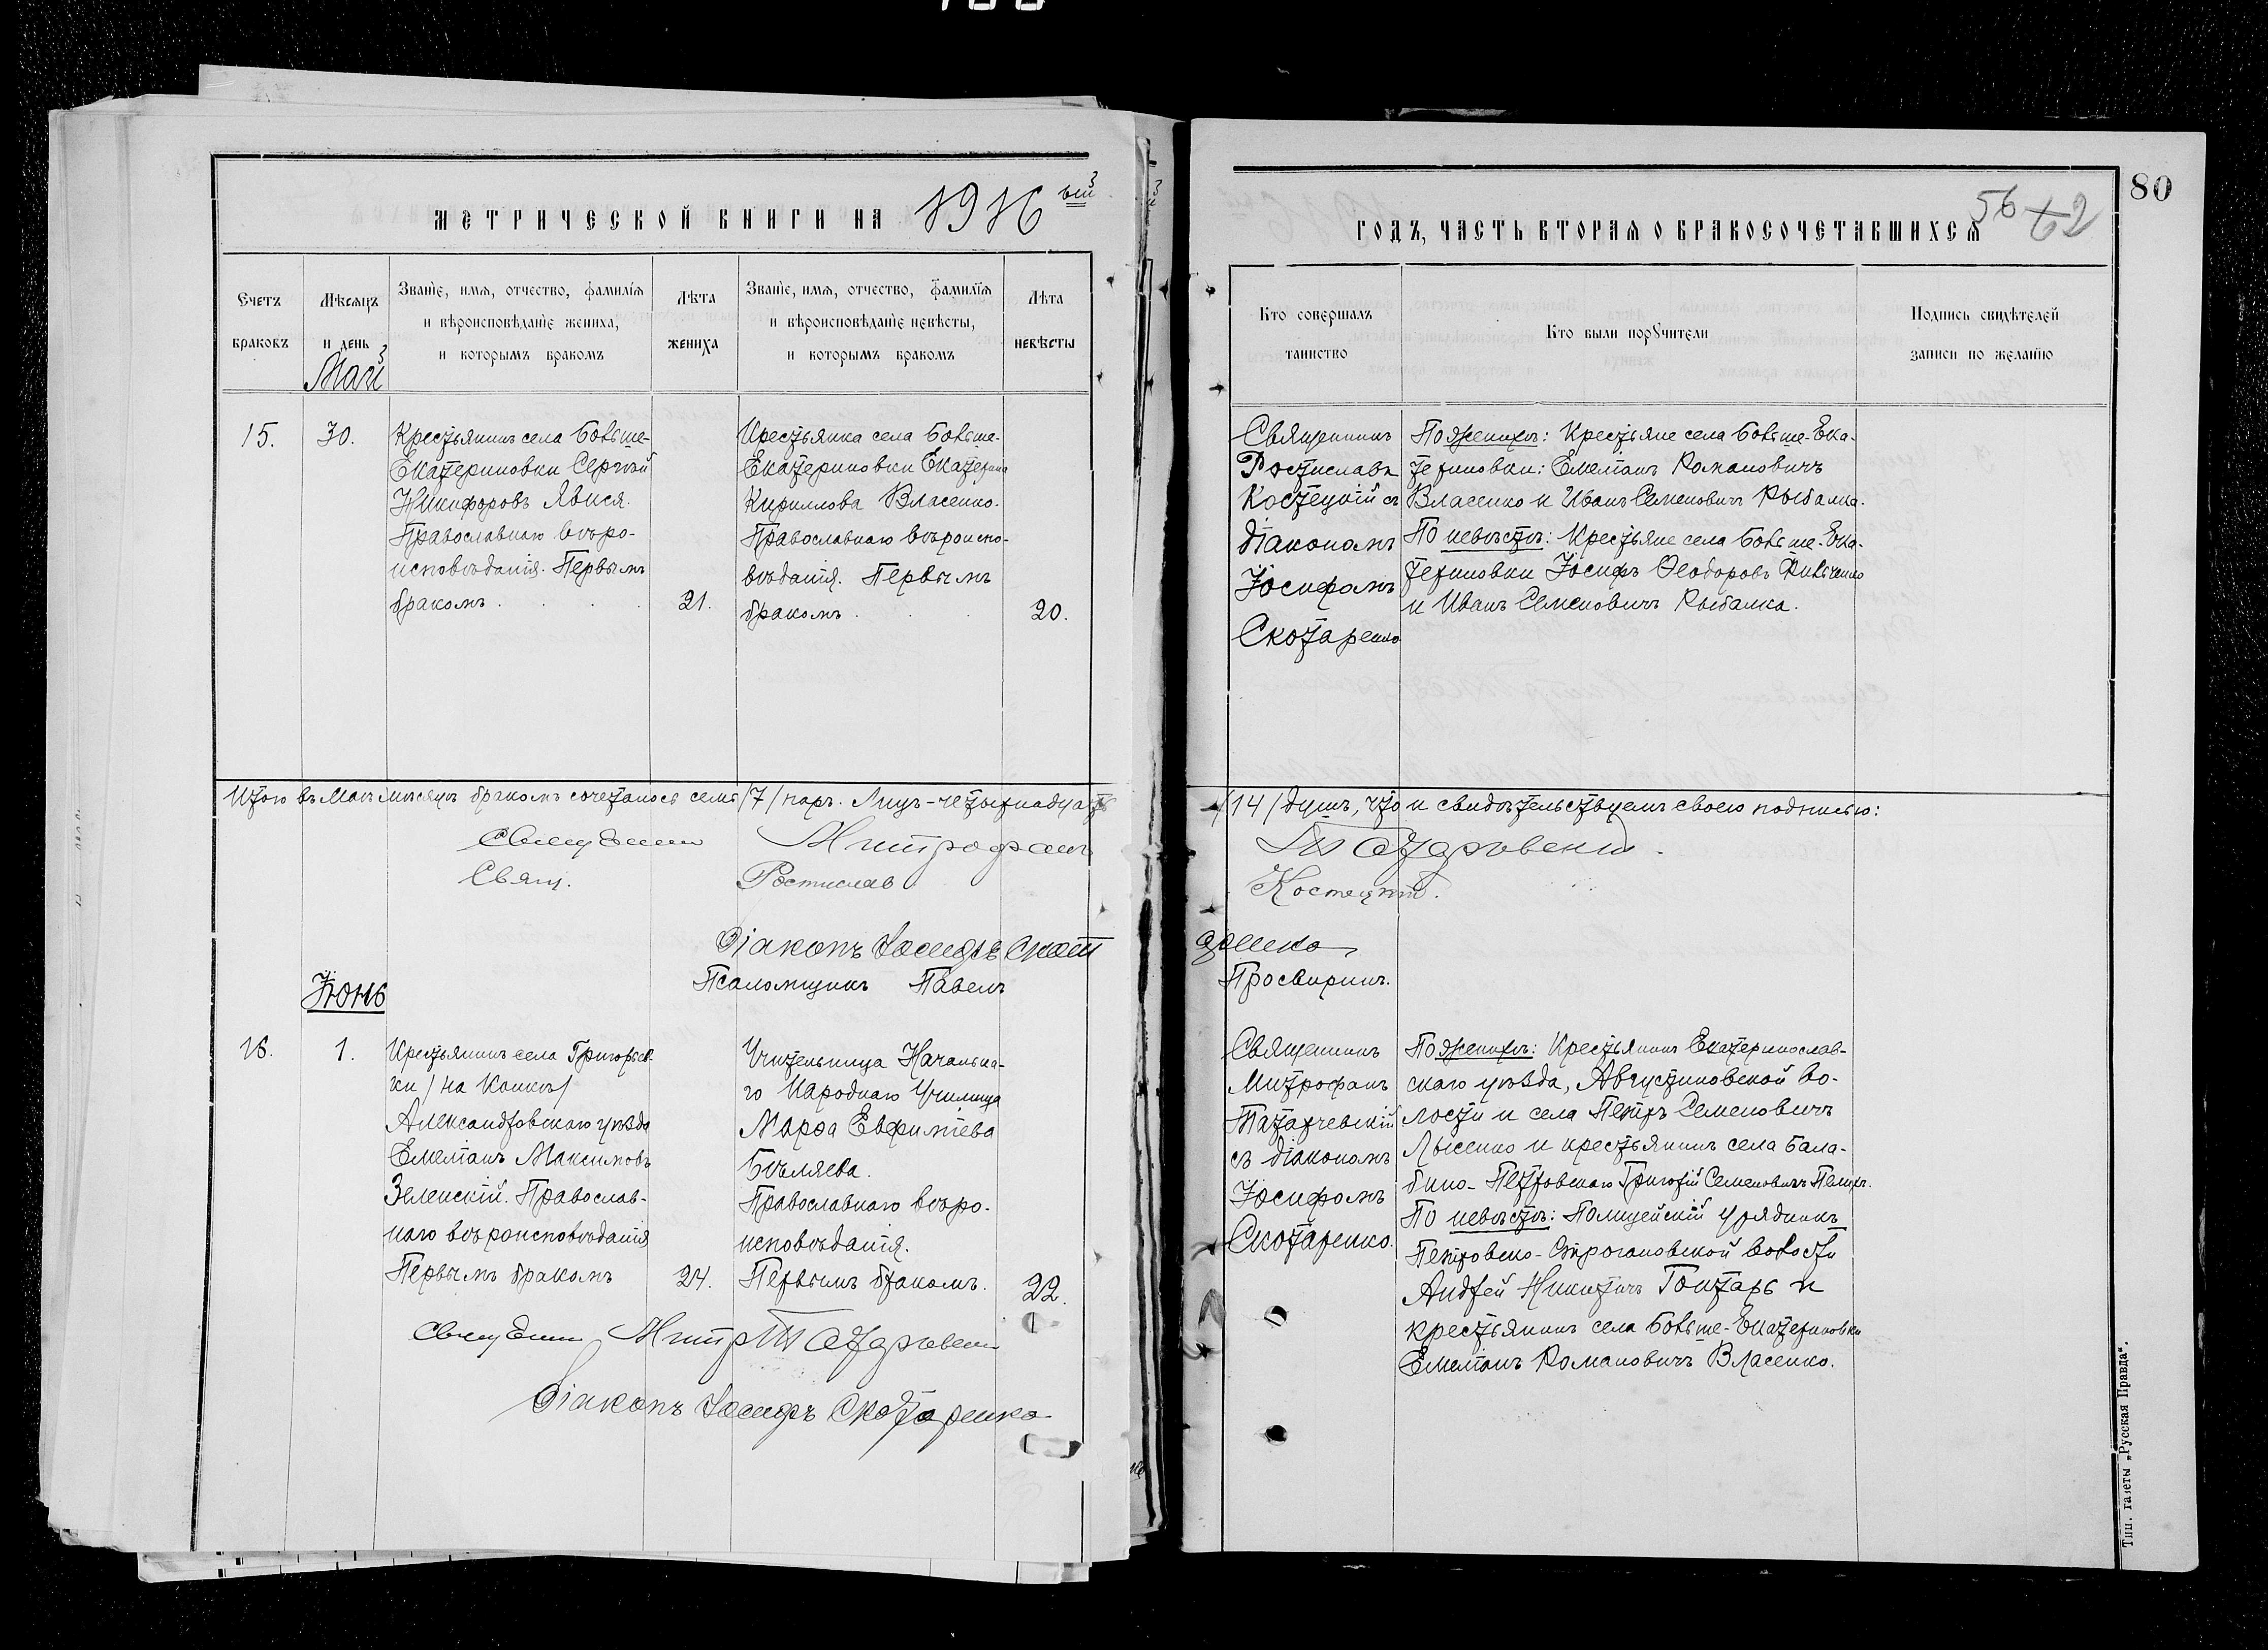 МЕТРИЧЕСКОЙ КНИГИ НА 1916 ый
Счетъ браковъ
Мѣсяцъ и день
Званіе, имя, отчество, фамилія
и вѣроисповѣданіе жениха,
и которымъ бракомъ
Лѣта жениха
Званіе, имя, отчество, фамилія
и вѣроисповѣданіе невѣсты,
и которымъ бракомъ
Лѣта невѣсты
Май
15.
30.
Крестьянинъ села Больше-
Екатериновки Сергѣй
Никифоровъ Явися.
Православнаго вѣро-
исповѣданія. Первымъ
бракомъ
21.
Крестьянка села Больше-
Екатериновки Екатерина
Кириллова Власенко.
Православнаго вѣроиспо-
вѣданія. Первымъ
бракомъ
20.
Итого въ Маѣ мѣсяцѣ бракомъ сочеталось семь /7/ паръ. Лицъ-четырнадцать
Священникъ Митрофанъ
Свящ. Ростиславъ
Діаконъ Іосифъ Скот
Псаломщикъ Павелъ
Іюнь
16.
1.
Крестьянинъ села Григорьев-
ки /на Конкѣ/
Александровскаго уѣзда
Емеліанъ Максимовъ
Зеленскій. Православ-
наго вѣроисповѣданія
Первымъ бракомъ
24.
Учительница Начальна-
го Народнаго Училища
Марѳа Евфиміева
Бѣляева.
Православнаго вѣро-
исповѣданія.
Первымъ бракомъ.
22.
Священникъ Митр Татарчевскій
Діаконъ Іосифъ Скотаренко
80
56
62
ГОДЪ, ЧАСТЬ ВТОРАЯ О БРАКОСОЧЕТАВШИХСЯ
Кто совершалъ
таинство
Кто были поручители
Подпись свидѣтелей
записи по желанію
Священникъ
Ростиславъ
Костецкій съ
діакономъ
Іосифомъ
Скотаренко
По женихѣ: Крестьяне села Больше-Ека-
териновки: Емеліанъ Романовичъ
Власенко и Иванъ Семеновичъ Рыбалка.
По невѣстѣ: Крестьяне села Больше-Ека-
териновки Іосифъ Ѳеодоровъ
и Иванъ Семеновичъ Рыбалка.
/14/ душъ, что и свидѣтельствуемъ своею подписью:
Татарчевскій.
Костецкій.
аренко
Просвиринъ.
Священникъ
Митрофанъ
Татарчевскій
съ діакономъ
Іосифомъ
Скотаренко.
По женихѣ: Крестьянинъ Екатеринослав-
скаго уѣзда, Августиновской во-
лости и села Петръ Семеновичъ
Лысенко и крестьянинъ села Бала-
бино-Петровскаго Григорій Семеновичъ
По невѣстѣ: Полицейскій урядникъ
Петровско-Строгановской волости
Андрей Никитичъ Гонтарь и
крестьянинъ села Больше-Екатериновки
Емеліанъ Романовичъ Власенко.
Тип. газеты „Русская Правда“.